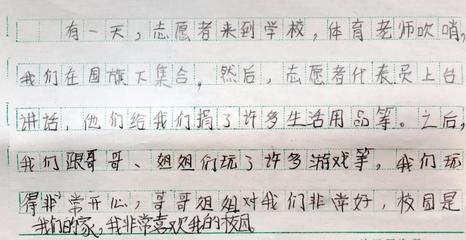 有一天,志愿者来到学校,体育老师吹哨,
我们在国旗下集合,然后,志愿者代表员上台
讲话,他们给我们捐了许多生活用品等。之后,
我们跟哥哥、姐姐们玩了许多游戏等,我们玩
得非常开心,哥哥姐姐对我们非常好,校园是
我们的家,我非常喜欢我的校园。